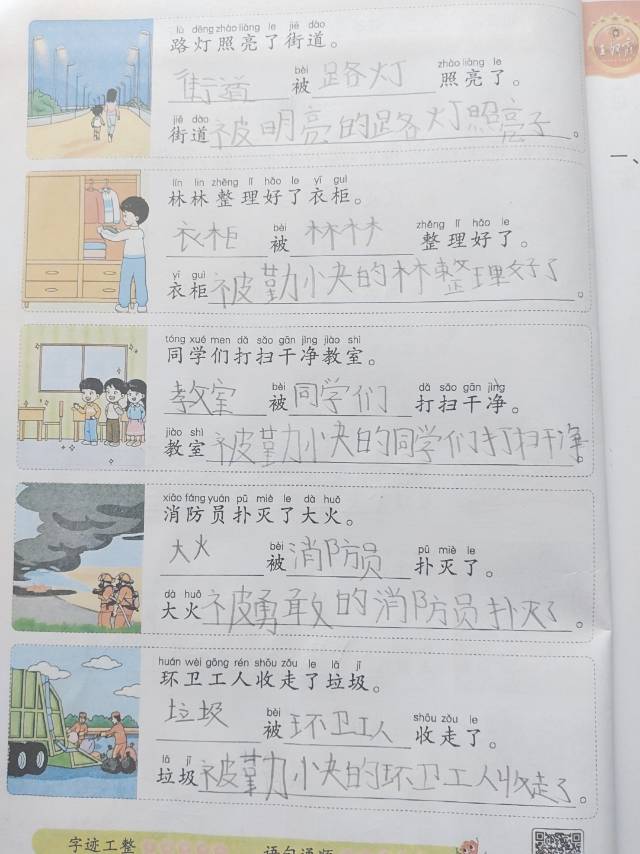 lù dēng zhào liàng le jiē dào
路灯照亮了街道。
bèi zhào liàng le
街道被路灯照亮了。
jiē dào
街道被明亮的路灯照亮了。
lín lin zhěng lǐ hǎo le yī guì
林林整理好了衣柜。
bèi zhěng lǐ hǎo le
衣柜被林林整理好了。
yī guì
衣柜被勤快的林整理好了。
tóng xué men dǎ sǎo gān jìng jiào shì
同学们打扫干净教室。
bèi dǎ sǎo gān jìng
教室被同学们打扫干净。
jiào shì
教室被勤快的同学们打扫干净。
xiāo fáng yuán pū miè le dà huǒ
消防员扑灭了大火。
bèi pū miè le
大火被消防员扑灭了。
dà huǒ
大火被勇敢的消防员扑灭了。
huán wèi gōng rén shōu zǒu le lā jī
环卫工人收走了垃圾。
bèi shōu zǒu le
垃圾被环卫工人收走了。
lā jī
垃圾被勤快的环卫工人收走了。
字迹工整
语句通顺
一、